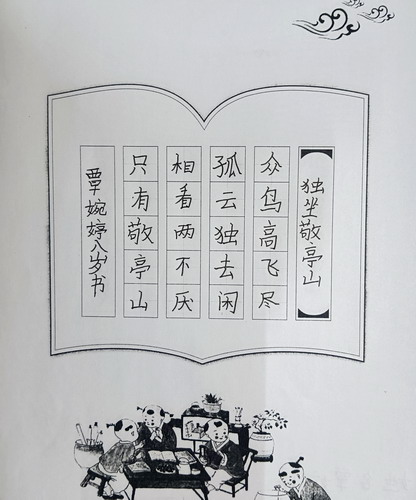 独坐敬亭山
众鸟高飞尽
孤云独去闲
相看两不厌
只有敬亭山
覃婉婷八岁书